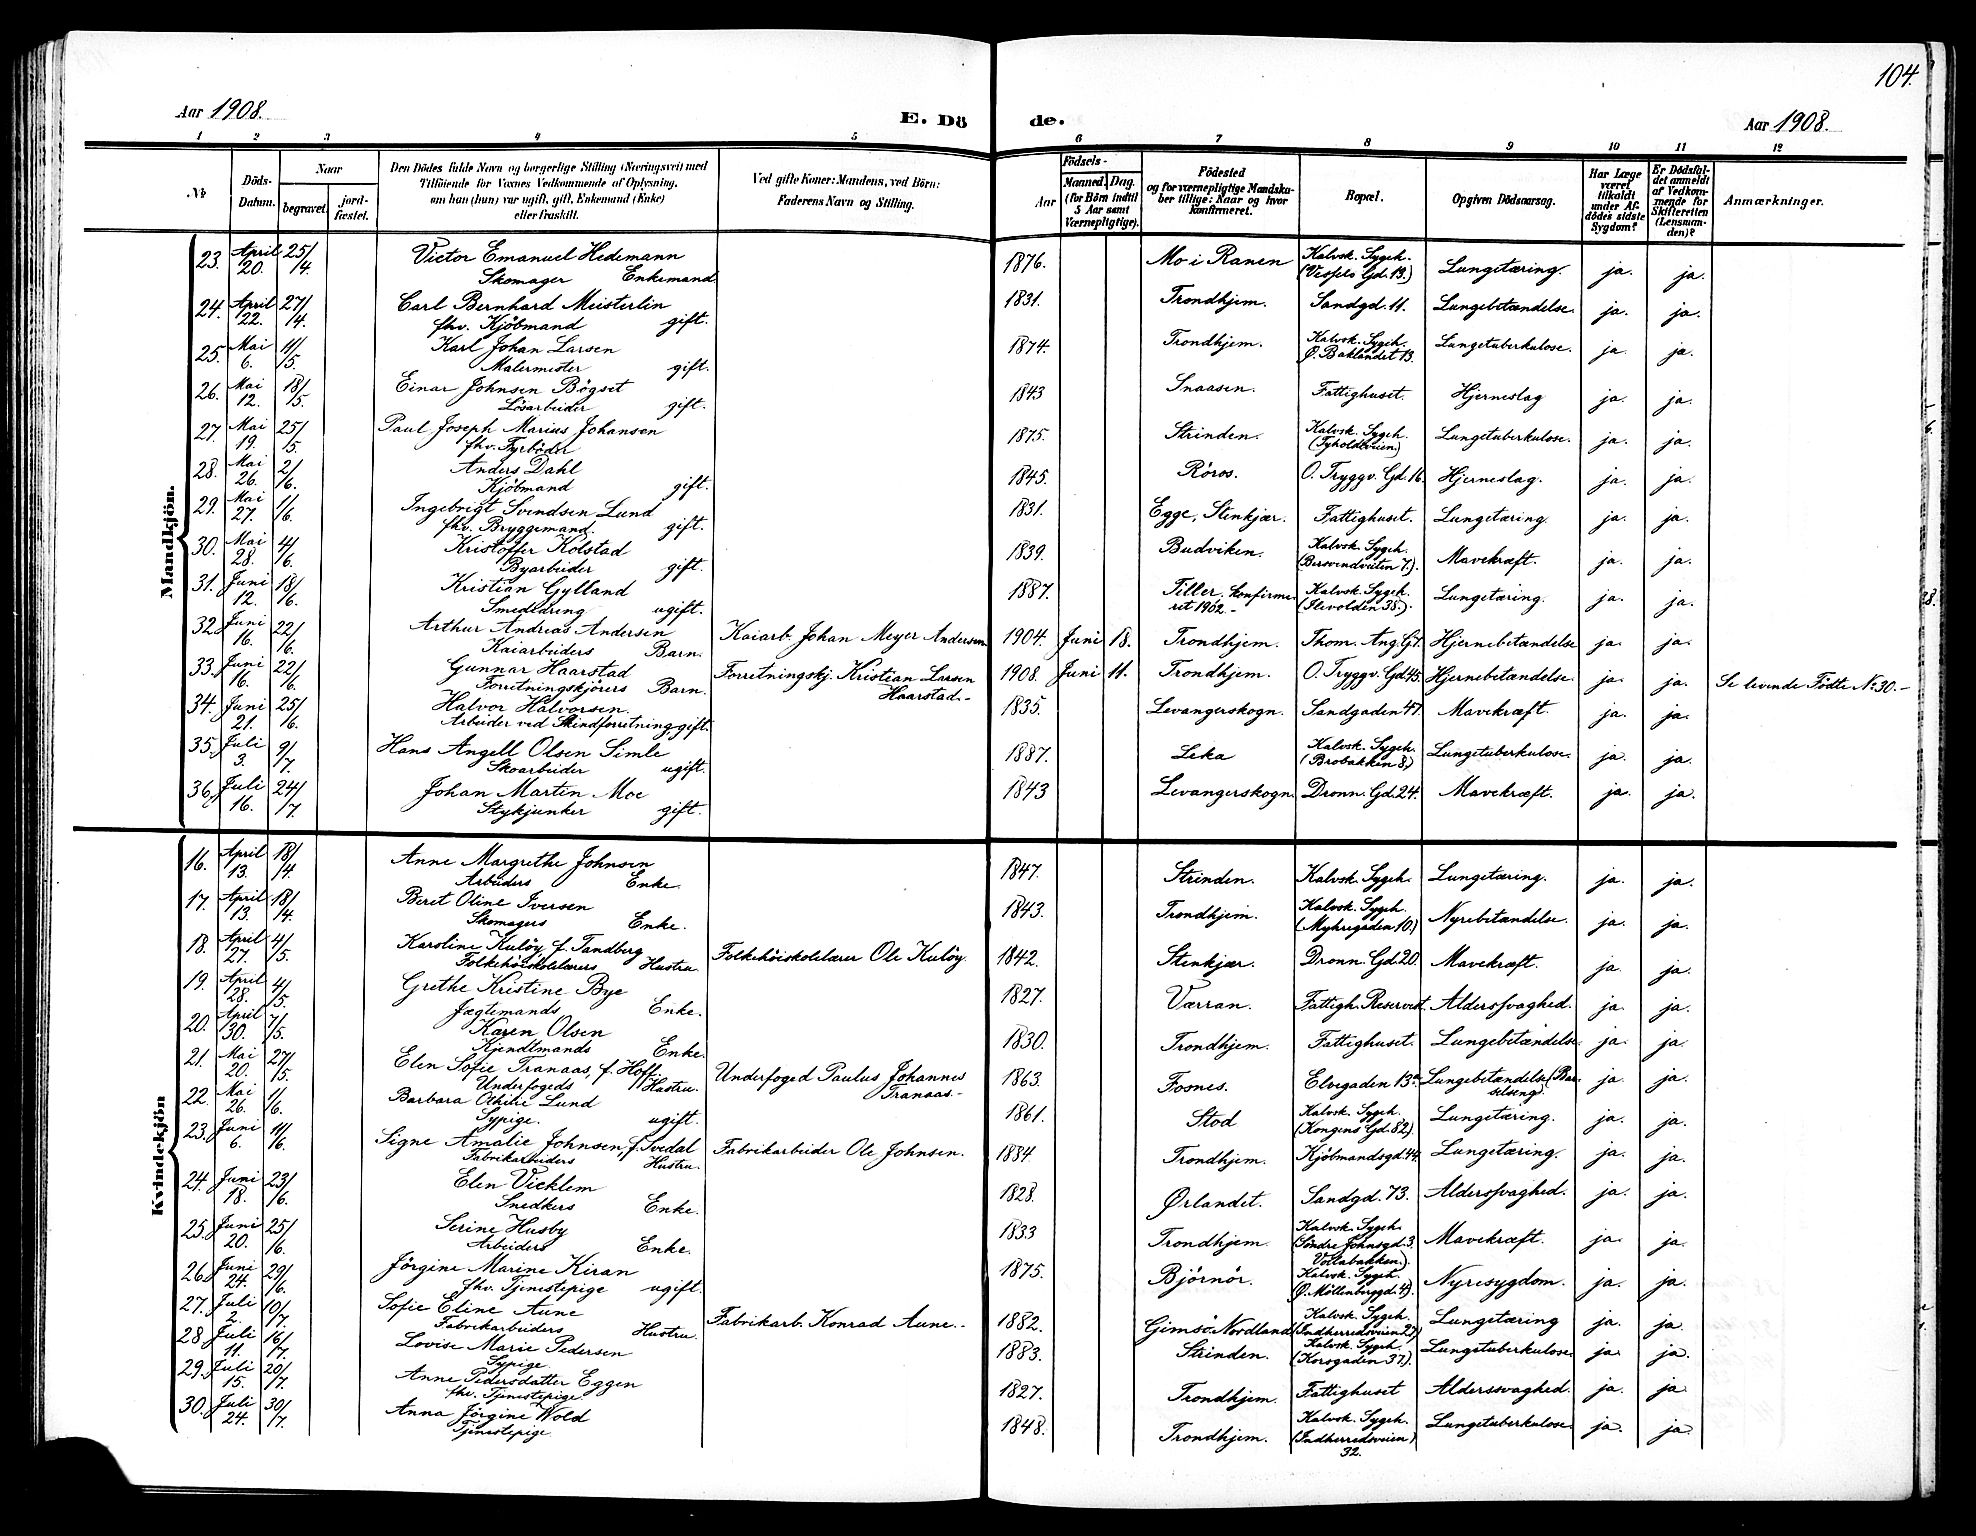 104.
Aar 1908.
E. Döde.
Aar 1908.
1 2 3 4 5 6 7 8 9 10 11 12
№
Döds-Datum.
Naar
begravet.
jord-fæstet.
Den Dödes fulde Navn og borgerlige Stilling (Næringsvei) med
Tilföiende for Voxnes Vedkommende af Oplysning,
om han (hun) var ugift, gift, Enkemand (Enke)
eller fraskilt.
Ved gifte Koner: Mandens, ved Börn:
Faderens Navn og Stilling.
Födsels-
Aar
Maaned. Dag.
(for Börn indtil
5 Aar samt
Værnepligtige).
Födested
og for værnepligtige Mandska-
ber tillige: Naar og hvor
konfirmeret.
Bopæl.
Opgiven Dödsaarsag.
Har Læge
været
tilkaldt
under Af-
dödes sidste
Sygdom?
Er Dödsfal-
det anmeldt
af Vedkom-
mende for
Skifteretten
(Lensman-
den)?
Anmærkninger.
Mandkjön.
23. April 20. 25/4. Victor Emanuel Hedemann 1876. Mo i Ranen Kalvsk. Sygeh. (Vessels Gd. 13.) Lungetæring. ja. ja.
Skomager Enkemand
24. April 22. 27/4. Carl Bernhard Meisterlin 1831. Trondhjem. Sandgd. 11. Lungebetændelse. ja. ja.
fhv. Kjöbmand gift.
25. Mai 6. 11/5. Karl Johan Larsen 1874. Trondhjem. Kalvsk. Sygeh. Ø. Baklandet 13. Lungetuberkulose. ja. ja.
Malermester gift.
26. Mai 12. 18/5. Einar Johnsen Bögset 1843 Snaasen. Fattighuset. Hjerneslag ja. ja.
Lösarbeider gift.
27. Mai 19. 25/5. Paul Joseph Marius Johansen 1875. Strinden. Kalvsk. Sygeh. (Tyholdtveien) Lungetuberkulose. ja. ja.
fhv. Fyrböder
28. Mai 26. 2/6. Anders Dahl 1845. Röros. O. Tryggv. Gd. 16. Hjerneslag. ja. ja.
Kjöbmand gift.
29. Mai 27. 1/6. Ingebrigt Svendsen Lund 1831. Egge, Stenkjær. Fattighuset. Lungetæring. ja. ja.
fhv. Bryggemand. gift.
30. Mai 28. 4/6. Kristoffer Kolstad 1839. Budviken. Kalvsk. Sygeh. (Bersvendveiten 7.) Mavekræft. ja. ja.
Byarbeider gift.
31. Juni 12. 18/6. Kristian Gylland 1887. Tiller. Konfirme-ret 1902.- Kalvsk. Sygeh. (Ilevolden 38). Lungetæring. ja. ja.
Smedlæring ugift.
32. Juni 16. 22/6. Arthur Andreas Andersen Kaiarb. Johan Meyer Andersen 1904. Juni 18. Trondhjem. Thom. Ang. Gt. Hjernebetændelse ja. ja.
Kaiarbeiders Barn.
33. Juni 16. 22/6. Gunnar Haarstad Forretningskj. Kristian Larsen Haarstad.- 1908. Juni 11. Trondhjem. O. Tryggv. Gd. 45. Hjernebetændelse. ja. ja. Se levende Födte No 30.-
Forretningskjörers Barn.
34. Juni 21. 25/6. Halvor Halvorsen. 1835. Levangerskogn. Sandgaden 47. Mavekræft. ja. ja.
Arbeider ved Skindforretning, gift.
35. Juli 3. 9/7. Hans Angell Olsen Simle 1887. Leka Kalvsk. Sygeh. (Brobakken 8.) Lungetuberkulose. ja. ja.
Skoarbeider ugift.
36. Juli 16. 24/7. Johan Martin Moe 1843 Levangerskogn. Dronn. Gd. 24. Mavekræft. ja. ja.
Stykjunker gift.
Kvindekjön
16. April 13. 18/4. Anne Margrethe Johnsen 1847. Strinden. Kalvsk. Sygeh. Lungetæring. ja. ja.
Arbeiders Enke.
17. April 13. 18/4. Beret Oline Iversen 1843. Trondhjem. Kalvsk. Sygeh. (Myhregaden 10.) Nyrebetændelse. ja. ja.
Skomagers Enke.
18. April 27. 4/5. Karoline Kulöy f. Tandberg Folkehöiskolelærer Ole Kulöy 1842. Stenkjær. Dronn. Gd. 20. Mavekræft. ja. ja.
Folkehöiskolelærers Hustru.
19. April 28. 4/5. Grethe Kristine Bye 1827. Værran. Fattigh. Reservest. Aldersvaghed. ja. ja.
Jægtemands Enke.
20. April 30. 7/5. Karen Olsen 1830. Trondhjem. Fattighuset. Lungebetændelse ja. ja.
Kjendtmands Enke.
21. Mai 20. 27/5. Elen Sofie Tranaas, f. Hoff. Underfoged Paulus Johannes Tranaas.- 1863. Fosnes. Elvegaden 13a. Lungebetændelse (Bar-selseng) ja. ja.
Underfogeds Hustru.
22. Mai 26. 1/6. Barbara Othilie Lund 1861. Stod Kalvsk. Sygeh. (Kongens Gd. 82) Lungetæring. ja. ja.
Sypige. ugift.
23. Juni 6. 11/6. Signe Amalie Johnsen, f. Svedal Fabrikarbeider Ole Johnsen. 1884. Trondhjem. Kjöbmandsgd. 44. Lungetæring. ja. ja.
Fabrikarbeiders Hustru.
24. Juni 18. 23/6. Elen Vicklem 1828. Ørlandet. Sandgd. 73. Aldersvaghed. ja. ja.
Snedkers Enke.
25. Juni 20. 25/6. Serine Husby 1833 Trondhjem. Kalvsk. Sygeh. (Söndre Johnsgd. 3. Vollabakken.) Mavekræft. ja. ja.
Arbeiders Enke.
26. Juni 24. 29/6. Jörgine Marine Kiran 1875. Björnör. Kalvsk. Sygeh. (Ø. Möllenbergd. 4). Nyresygdom. ja. ja.
fhv. Tjenestepige ugift.
27. Juli 2. 10/7. Sofie Eline Aune Fabrikarb. Konrad Aune.- 1882. Gimsö. Nordland Kalvsk. Sygeh. (Indherredsveien 27) Lungetæring ja. ja.
Fabrikarbeiders Hustru.
28. Juli 11. 16/7. Lovise Marie Pedersen 1883. Strinden. Kalvsk. Sygeh. (Korsgaden 37). Lungetuberkulose ja. ja.
Sypige.
29. Juli 15. 20/7. Anne Pedersdatter Eggen 1827. Trondhjem. Fattighuset Alderssvaghed. ja. ja.
fhv. Tjenestepige
30. Juli 24. 30/7. Anna Jörgine Wold 1848. Trondhjem. Kalvsk. Sygeh. (Indherredsveien) 32. Lungetuberkulose. ja. ja.
Tjenestepige.